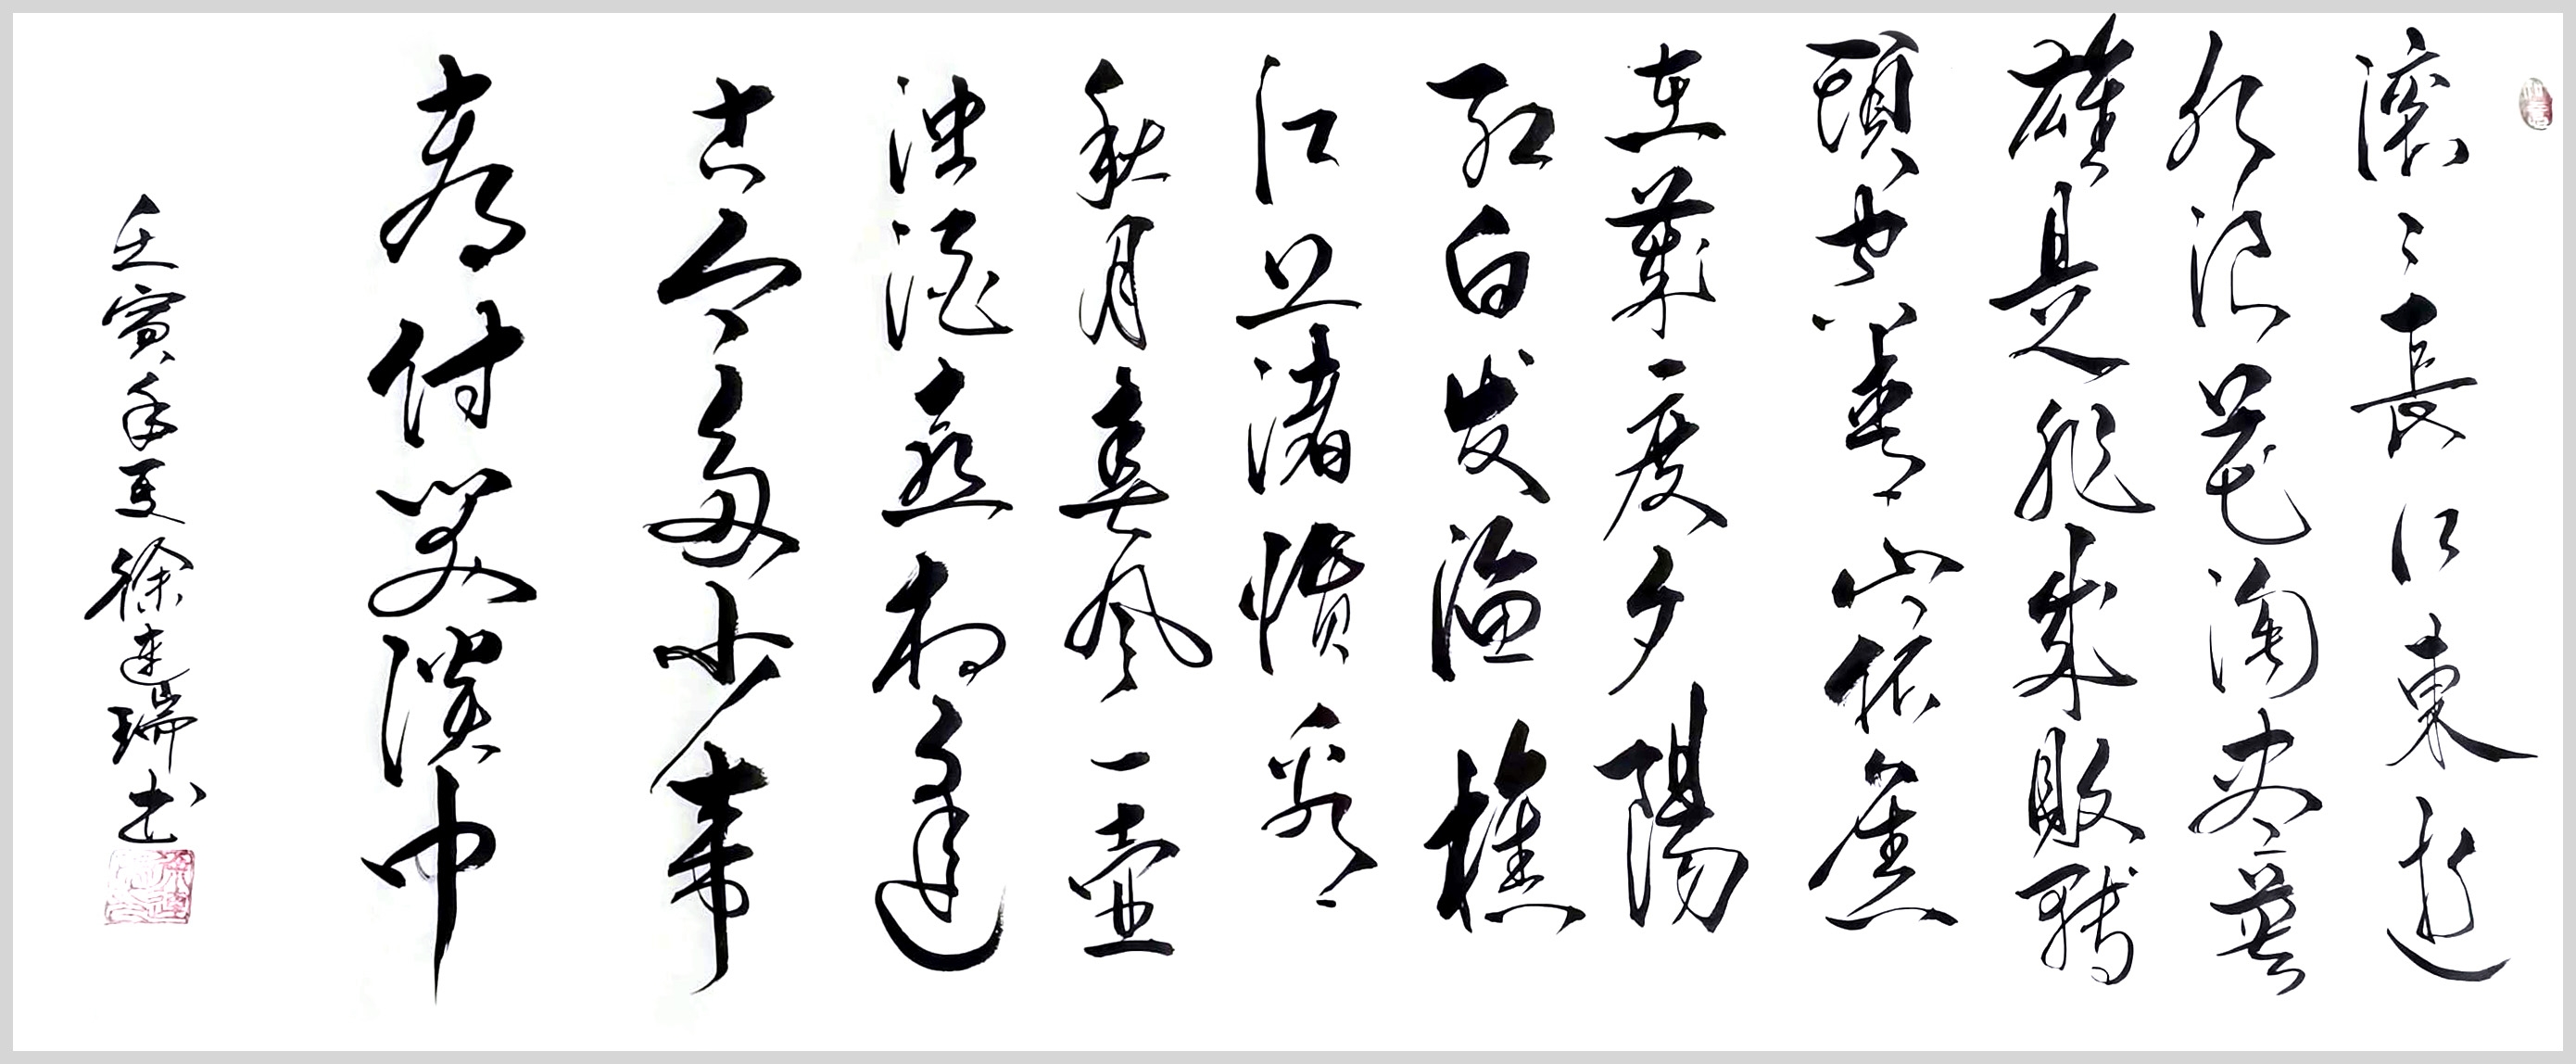 滚〻長江東逝
水浪花淘尽英
雄是非成敗轉
頭空青山依舊
在幾度夕陽
红白发渔樵
江上渚惯看
秋月春风一壶
浊酒喜相逢
古今多少事
都付笑谈中
壬寅年夏徐建瑞书